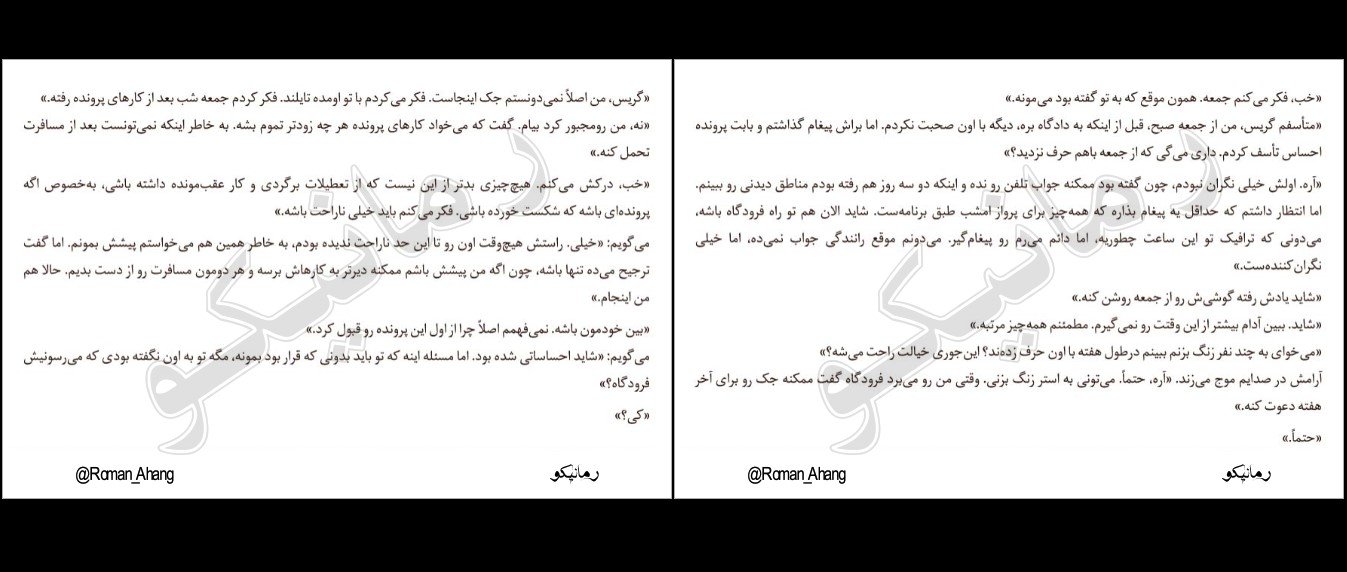 «گریس، من اصلاً نمی‌دونستم جک اینجاست. فکر می‌کردم با تو اومده تایلند. فکر کردم جمعه شب بعد از کارهای پرونده رفته.»
«نه، من رو مجبور کرد بیام. گفت که می‌خواد کارهای پرونده هر چه زودتر تموم بشه. به خاطر اینکه نمی‌تونست بعد از مسافرت
تحمل کنه.»
«خب، درکش می‌کنم. هیچ‌چیزی بدتر از این نیست که از تعطیلات برگردی و کار عقب‌مونده داشته باشی، به‌خصوص اگه
پرونده‌ای باشه که شکست خورده باشی. فکر می‌کنم باید خیلی ناراحت باشه.»
می‌گویم: «خیلی. راستش هیچ‌وقت اون رو تا این حد ناراحت ندیده بودم، به خاطر همین هم می‌خواستم پیشش بمونم. اما گفت
ترجیح می‌ده تنها باشه، چون اگه من پیشش باشم ممکنه دیرتر به کارهاش برسه و هر دومون مسافرت رو از دست بدیم. حالا هم
من اینجام.»
«بین خودمون باشه. نمی‌فهمم اصلاً چرا از اول این پرونده رو قبول کرد.»
می‌گویم: «شاید احساساتی شده بود. اما مسئله اینه که تو باید بدونی که قرار بود بمونه، مگه تو به اون نگفته بودی که می‌رسونیش
فرودگاه؟»
«کی؟»
@Roman_Ahang
رمانیکو
«خب، فکر می‌کنم جمعه. همون موقع که به تو گفته بود می‌مونه.»
«متأسفم گریس، من از جمعه صبح، قبل از اینکه به دادگاه بره، دیگه با اون صحبت نکردم. اما براش پیغام گذاشتم و بابت پرونده
احساس تأسف کردم. داری می‌گی که از جمعه باهم حرف نزدید؟»
«آره. اولش خیلی نگران نبودم، چون گفته بود ممکنه جواب تلفن رو نده و اینکه دو سه روز هم رفته بودم مناطق دیدنی رو ببینم.
اما انتظار داشتم که حداقل یه پیغام بذاره که همه‌چیز برای پرواز امشب طبق برنامه‌ست. شاید الان هم تو راه فرودگاه باشه،
می‌دونی که ترافیک تو این ساعت چطوریه، اما دائم می‌رم رو پیغام‌گیر. می‌دونم موقع رانندگی جواب نمی‌ده، اما خیلی
نگران‌کننده‌ست.»
«شاید یادش رفته گوشی‌ش رو از جمعه روشن کنه.»
«شاید. ببین آدام بیشتر از این وقتت رو نمی‌گیرم. مطمئنم همه‌چیز مرتبه.»
«می‌خوای به چند نفر زنگ بزنم ببینم درطول هفته با اون حرف زده‌ند؟ این‌جوری خیالت راحت می‌شه؟»
آرامش در صدایم موج می‌زند. «آره، حتماً. می‌تونی به استر زنگ بزنی. وقتی من رو می‌برد فرودگاه گفت ممکنه جک رو برای آخر
هفته دعوت کنه.»
«حتماً.»
@Roman_Ahang
رمانیکو